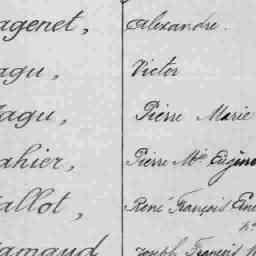 agenet, Alexandre.
agu, Victor
Jagu, Pierre Marie
ahier, Pierre Mie Eugène
allot, René François
amaud Joseph François